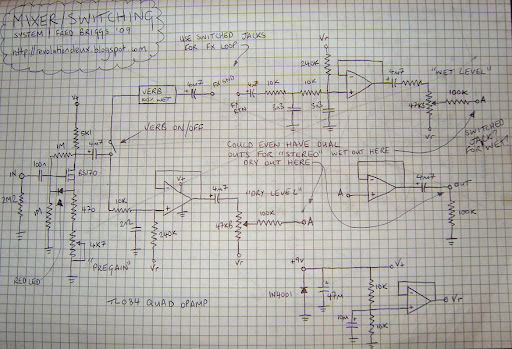 MIXER/SWITCHING
SYSTEM | FRED BRIGGS '09
http://revolutiondeux.blogspot.com
USE SWITCHED JACKS
FOR FX LOOP
Vr
240K
V+
VERB
4n7
FX SND
4n7
10K
10K
4n7
"WET LEVEL"
FX RTN
3n3
3n3
47KB
100K
A
Vr
5K1
1M
4n7
VERB ON/OFF
COULD EVEN HAVE DUAL
OUTS FOR "STEREO"
WET OUT HERE
DRY OUT HERE
SWITCHED
JACK?
FOR WET?
IN
100n
BS170
2M2
A
1M
470
4K7
"PREGAIN"
RED LED
10K
V+
4n7
"DRY LEVEL"
240K
Vr
47KB
100K
A
Vr
A
4n7
OUT
100K
+9V
V+
1N4001
47M
10K
10M
10K
Vr
TL084 QUAD OPAMP